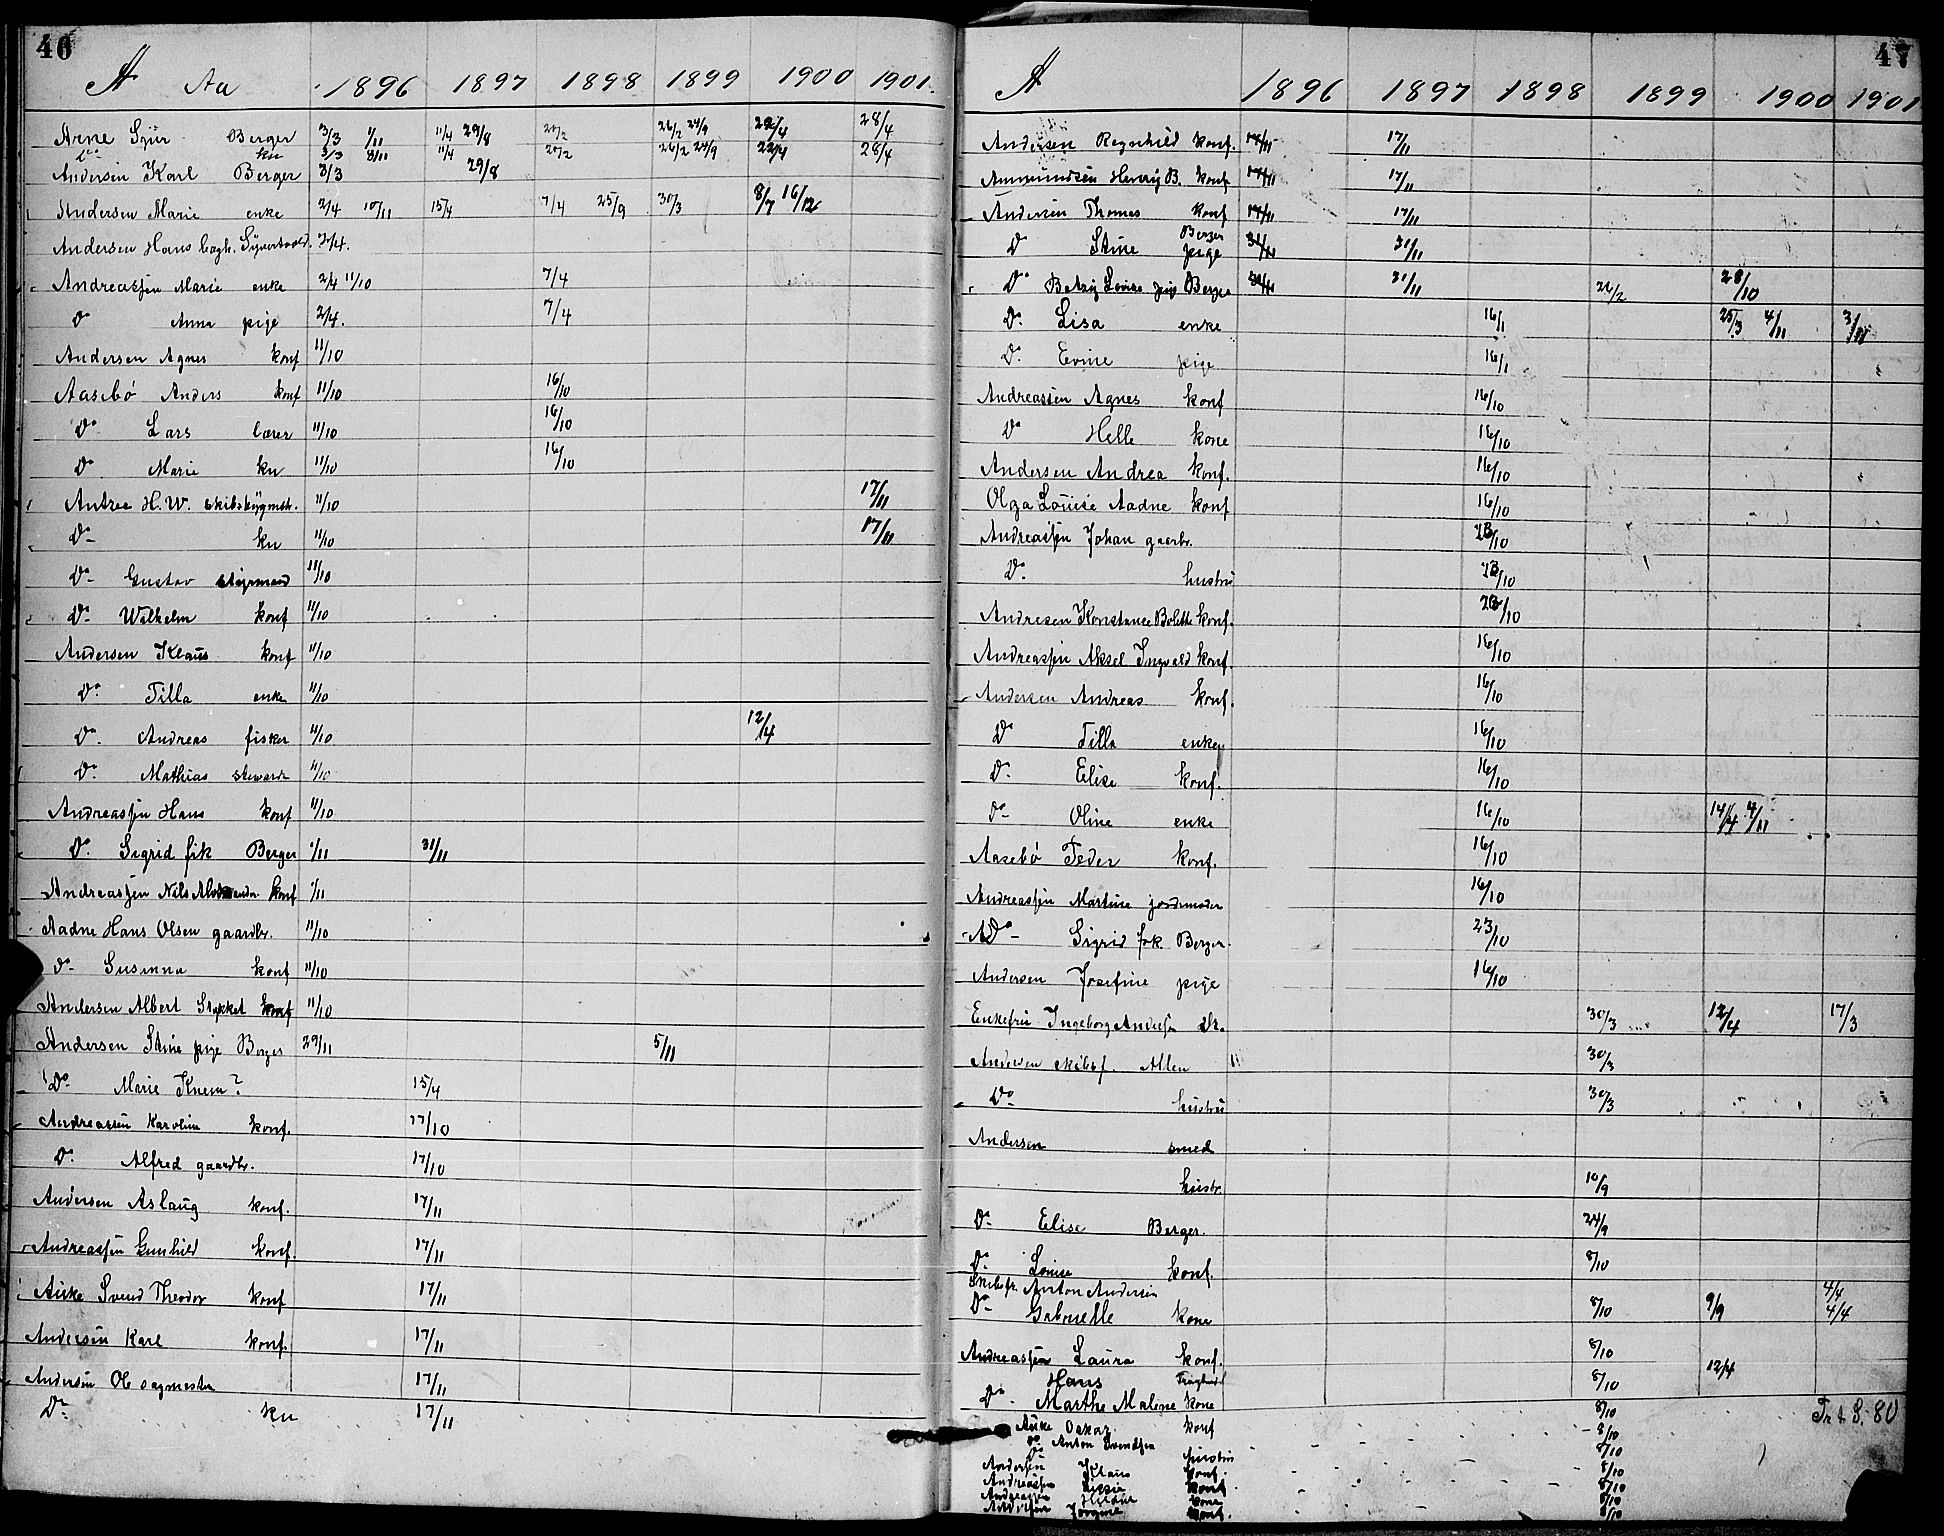 46
A Aa 1896 1897 1898 1899 1900 1901.
Arne Berger 3/3 1/11 11/4 29/8 26/2 24/9 28/4
kn 3/3 8/11 11/4 26/2 24/9 28/4
Andersen Karl Berger 3/3 29/8
Andersen Marie enke 2/4 10/11 15/4 7/4 25/9 30/3 8/7 16/12
Andersen Hans 2/4.
Andreassen Marie enke 2/4 11/10 7/4
Do Anna pige 2/4. 7/4
Andersen Agnes konf 11/10
Aasebø Anders konf 11/10 16/10
Do Lars lærer 11/10 16/10
Do Marie kn 11/10 16/10
Antree H.W. 11/10 17/11
Do kn 11/10 17/11
Do Gustav styrmand 11/10
Do Wilhelm konf 11/10
Andersen Klaus konf 11/10
Do Tilla enke 11/10
Do. Andreas fisker 11/10 12/4
Do. Mathias steward 11/10
Andreassen Hans konf 11/10
Do. Sigrid frk Berger 1/11 31/11
Andreassen Nils konf 1/11
Aadne Hans Olsen gaardbr. 11/10
Do Susanna konf 11/10
Andersen Albert Stokket konf 11/10
Andersen Stine pige Berger 29/11 5/11
Do Marie Knem? 15/4
Andreassen Karoline konf. 17/10
Do. Alfred gaardbr. 17/10
Andersen Aslaug konf. 17/11
Andreassen Gunhild konf. 17/11
Auke Svend Theodor konf 17/11
Andersen Karl konf. 17/11
Andersen Ole sagmester 17/11
Do kn 17/11
47
A 1896 1897 1898 1899 1900 1901
Andersen Regnhild konf. 17/11
Ammundsen Henry B. konf 17/11
Andersen Thomas konf 17/11
Do Stine Berger pige 31/11
Do Betzy Louise pige Berger 31/11 26/2 28/10
Do. Lisa enke 16/1 25/3 4/11 3/11
Do. Evine pige 16/1
Andreassen Agnes konf 16/10
Do Helle kone 16/10
Andersen Andrea konf. 16/10
Olga Louise Aadne konf 16/10
Andreassen Johan gaardbr. 23/10
Do. hustru 23/10
Andresen Konstance Bolette konf. 23/10
Andreassen Aksel Ingvald konf. 16/10
Andersen Andreas konf. 16/10
Do Tilla enke 16/10
Do. Elise konf. 16/10
Do Oline enke 16/10 14/4 4/11
Aasebø Peder konf. 16/10
Andreassen Martine jordmoder 16/10
Do Sigrid frk. Berger. 23/10
Andersen Josefine pige 16/10
Enkefru Ingeborg Andresen 30/3 12/4 17/3
Andersen skibsf. Allen 30/3
Do hustru 30/3
Andersen smed
hustr. 10/9
Do Elise Berger. 24/9
Do Louise konf. 8/10
Skibsfr. Anton Andersen 4/4
Do Gabrielle kone 8/10 9/9 4/4
Andreassen Laura konf. 8/10
Hans 8/10 12/4
Do Marthe Malene kone 8/10
Auke Oskar konf 8/10
Do Anton Svendsen 8/10
Do hustru
Andersen Klaus konf. 8/10
Andreassen konf 8/10
Andreassen kone 8/10
Andersen Jorgine konf. 8/10